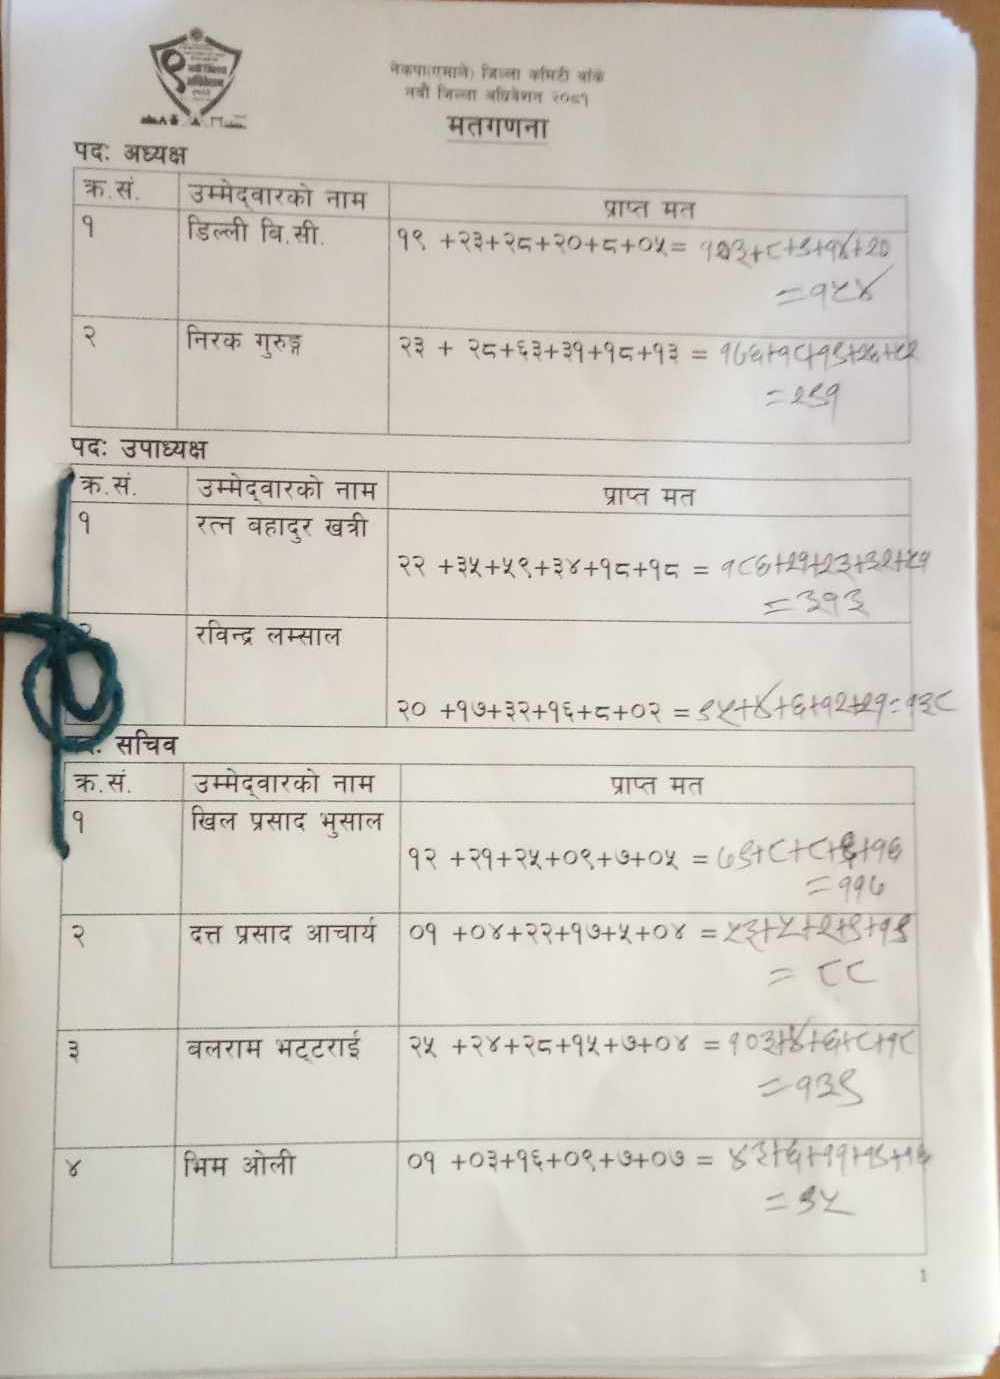 नेकपा(एमाले) जिल्ला कमिटी बाँके
नवौं जिल्ला अधिवेशन २०८१
मतगणना
पदः अध्यक्ष
क्र.सं. उम्मेद्वारको नाम प्राप्त मत
१ डिल्ली बि.सी. १९ +२३+२८+२०+८+०५= १०३+८+९+१४+२०
=१५४
२ निरक गुरुङ्ग २३ + २८+६३+३१+१८+१३ = १७६+१८+१९+२६+५२
=२९१
पदः उपाध्यक्ष
क्र.सं. उम्मेद्वारको नाम प्राप्त मत
१ रत्न बहादुर खत्री
२२ +३५+५९+३४+१८+१८ = १८६+२१+२३+३२+५१
=३१३
२ रविन्द्र लम्साल
२० +१७+३२+१६+८+०२ = ९५+४+६+१२+२१=१३८
पदः सचिव
क्र.सं. उम्मेद्वारको नाम प्राप्त मत
१ खिल प्रसाद भुसाल
१२ +२१+२५+०९+७+०५ = ७९+८+८+६+१६
=११७
२ दत्त प्रसाद आचार्य ०१ +०४+२२+१७+५+०४ =५३+५+२+९+१९
= ८८
३ बलराम भट्टराई २५ +२४+२८+१५+७+०४ = १०३+४+६+८+१८
=१३९
४ भिम ओली ०१ +०३+१६+०९+७+०७ = ४३+६+११+१९+१६
=९५
1